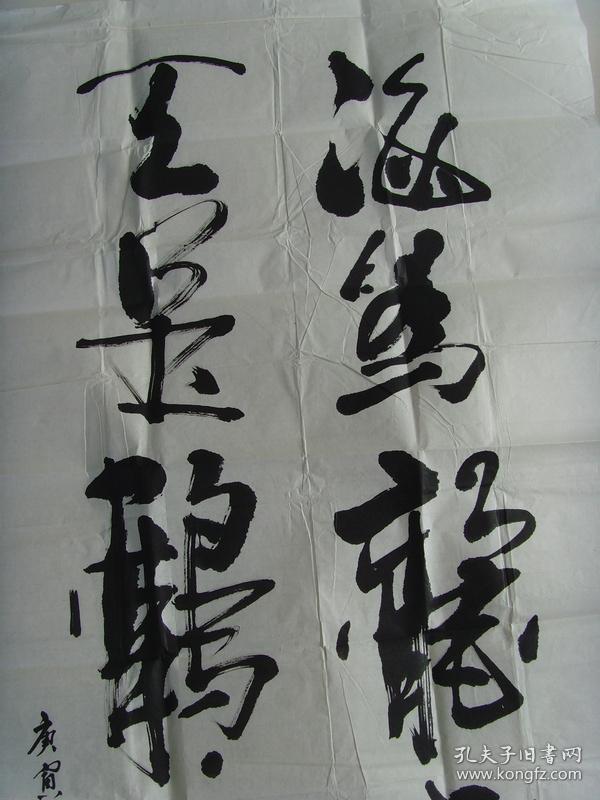 海為龍
天是鶴
庚寅
孔夫子旧书网
www.kongfz.com